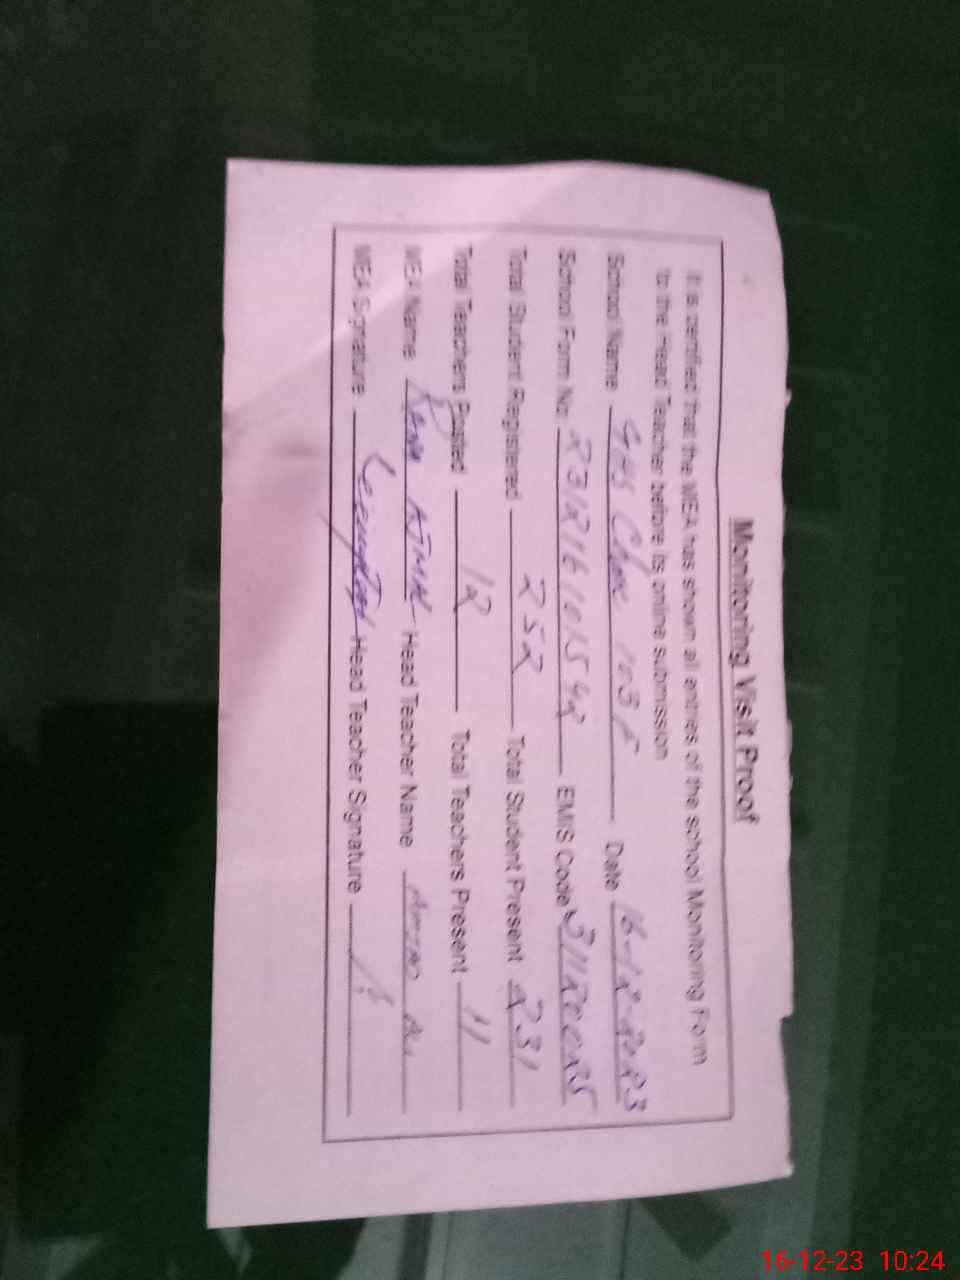 Monitoring Visit Proof
It is certified that the MEA has shown all entries of the school Monitoring Form
to the Head Teacher before its online submission
School Name GHS Chak 103 F Date 16-12-2023
School Form No. EMIS Code 31120025
Total Student Registered 252 Total Student Present 231
Total Teachers Posted 12 Total Teachers Present 11
MEA Name Rana Head Teacher Name
MEA Signature Head Teacher Signature
16-12-23 10:24